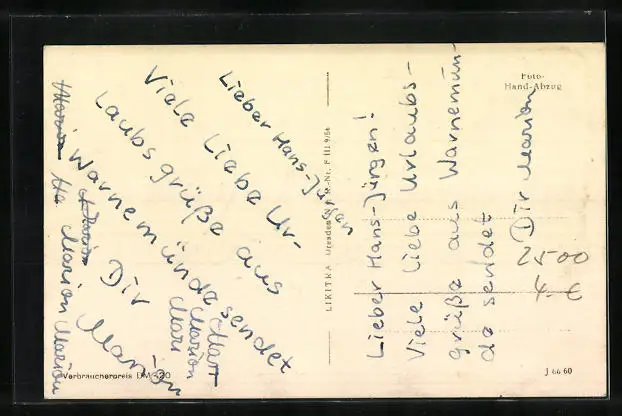 Lieber Hans-Jürgen
Viele Liebe Ur-
laubsgrüße aus
Warnemünde sendet
Dir
Marion
Marion
Marion
Marion
Marion
Marion
Verbraucherpreis DM -,20
LIKITRA Dresden
P III 9/56
Foto-
Hand-Abzug
Lieber Hans-Jürgen!
Viele Liebe Urlaubs-
grüße aus Warnemün-
de sendet
Dir Marion
2500
4.-€
J 66 60